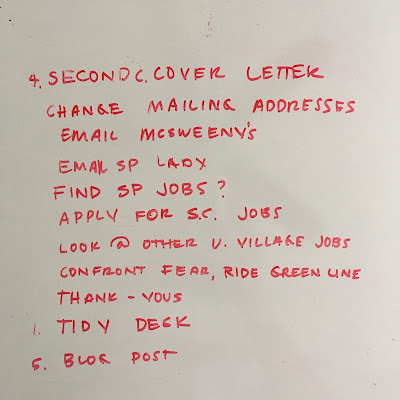 4. SECOND C. COVER LETTER
CHANGE MAILING ADDRESSES
EMAIL MCSWEENY'S
EMAIL SP LADY
FIND SP JOBS?
APPLY FOR S.C. JOBS
LOOK @ OTHER U. VILLAGE JOBS
CONFRONT FEAR, RIDE GREEN LINE
THANK-YOUS
1. TIDY DECK
5. BLOG POST